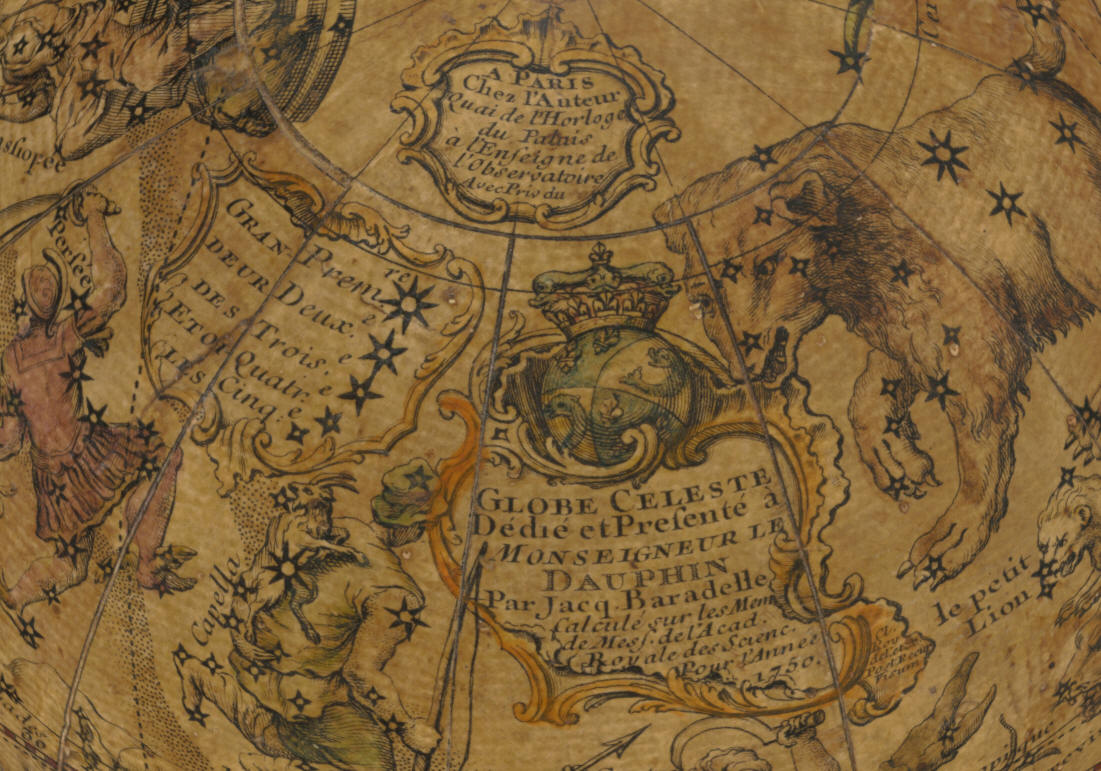 A PARIS
Chez l'Auteur
Quai de l'Horloge
du Palais
à l'Enseigne de
l'Observatoire
Avec Priv du
GRAN
DEUR
DES
ETOI
LES
Premi re
Deux. e
Trois. e
Quatr. e
Cinq. e
Persée
Capella
GLOBE CELESTE
Dédié et Presenté à
MONSEIGNEUR LE
DAUPHIN
Par Jacq. Baradelle
Calculé sur les Mem
de Mess. de l'Acad.
Royale des Scienc.
Pour l'Année
1750.
le petit
Lion